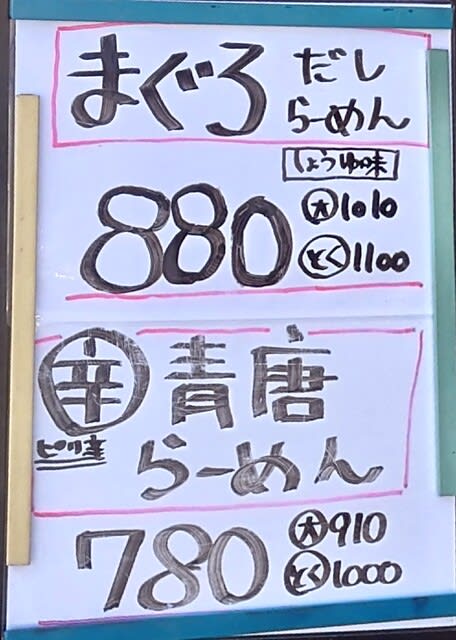 まぐろ だし
らーめん
しょうゆ味
880 大 1010
とく 1100
辛 青唐
ピリ辛 らーめん
780 大 910
とく 1000